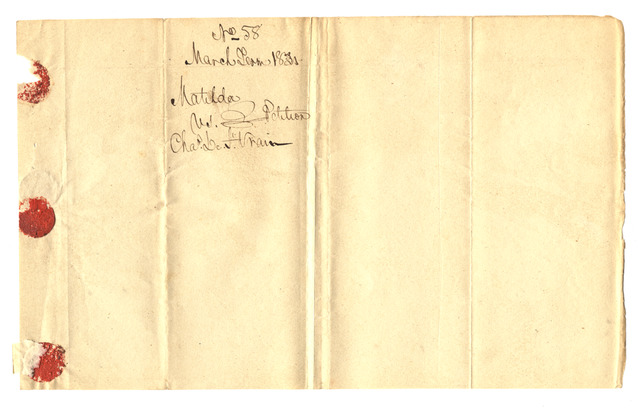 No 58
March Term 1831
Matilda
vs. Petition
Chas. De St. Vrain